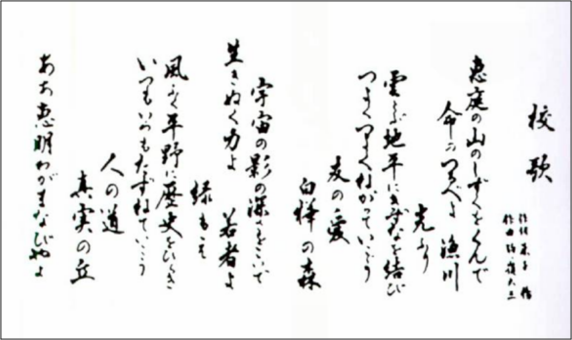 校歌
恵庭の山のしずくをくんで
命つ
漁川
光り
雲とぶ地平にきずなを結び
つよくつよくねがっていこう
友の愛
白樺の森
宇宙の影の深さをこいで
生きぬく力よ 若者よ
緑もえ
風ふく平野に歴史をひらき
いつもいつもたずねていこう
人の道
真実の丘
ああ恵明わがまなびやよ